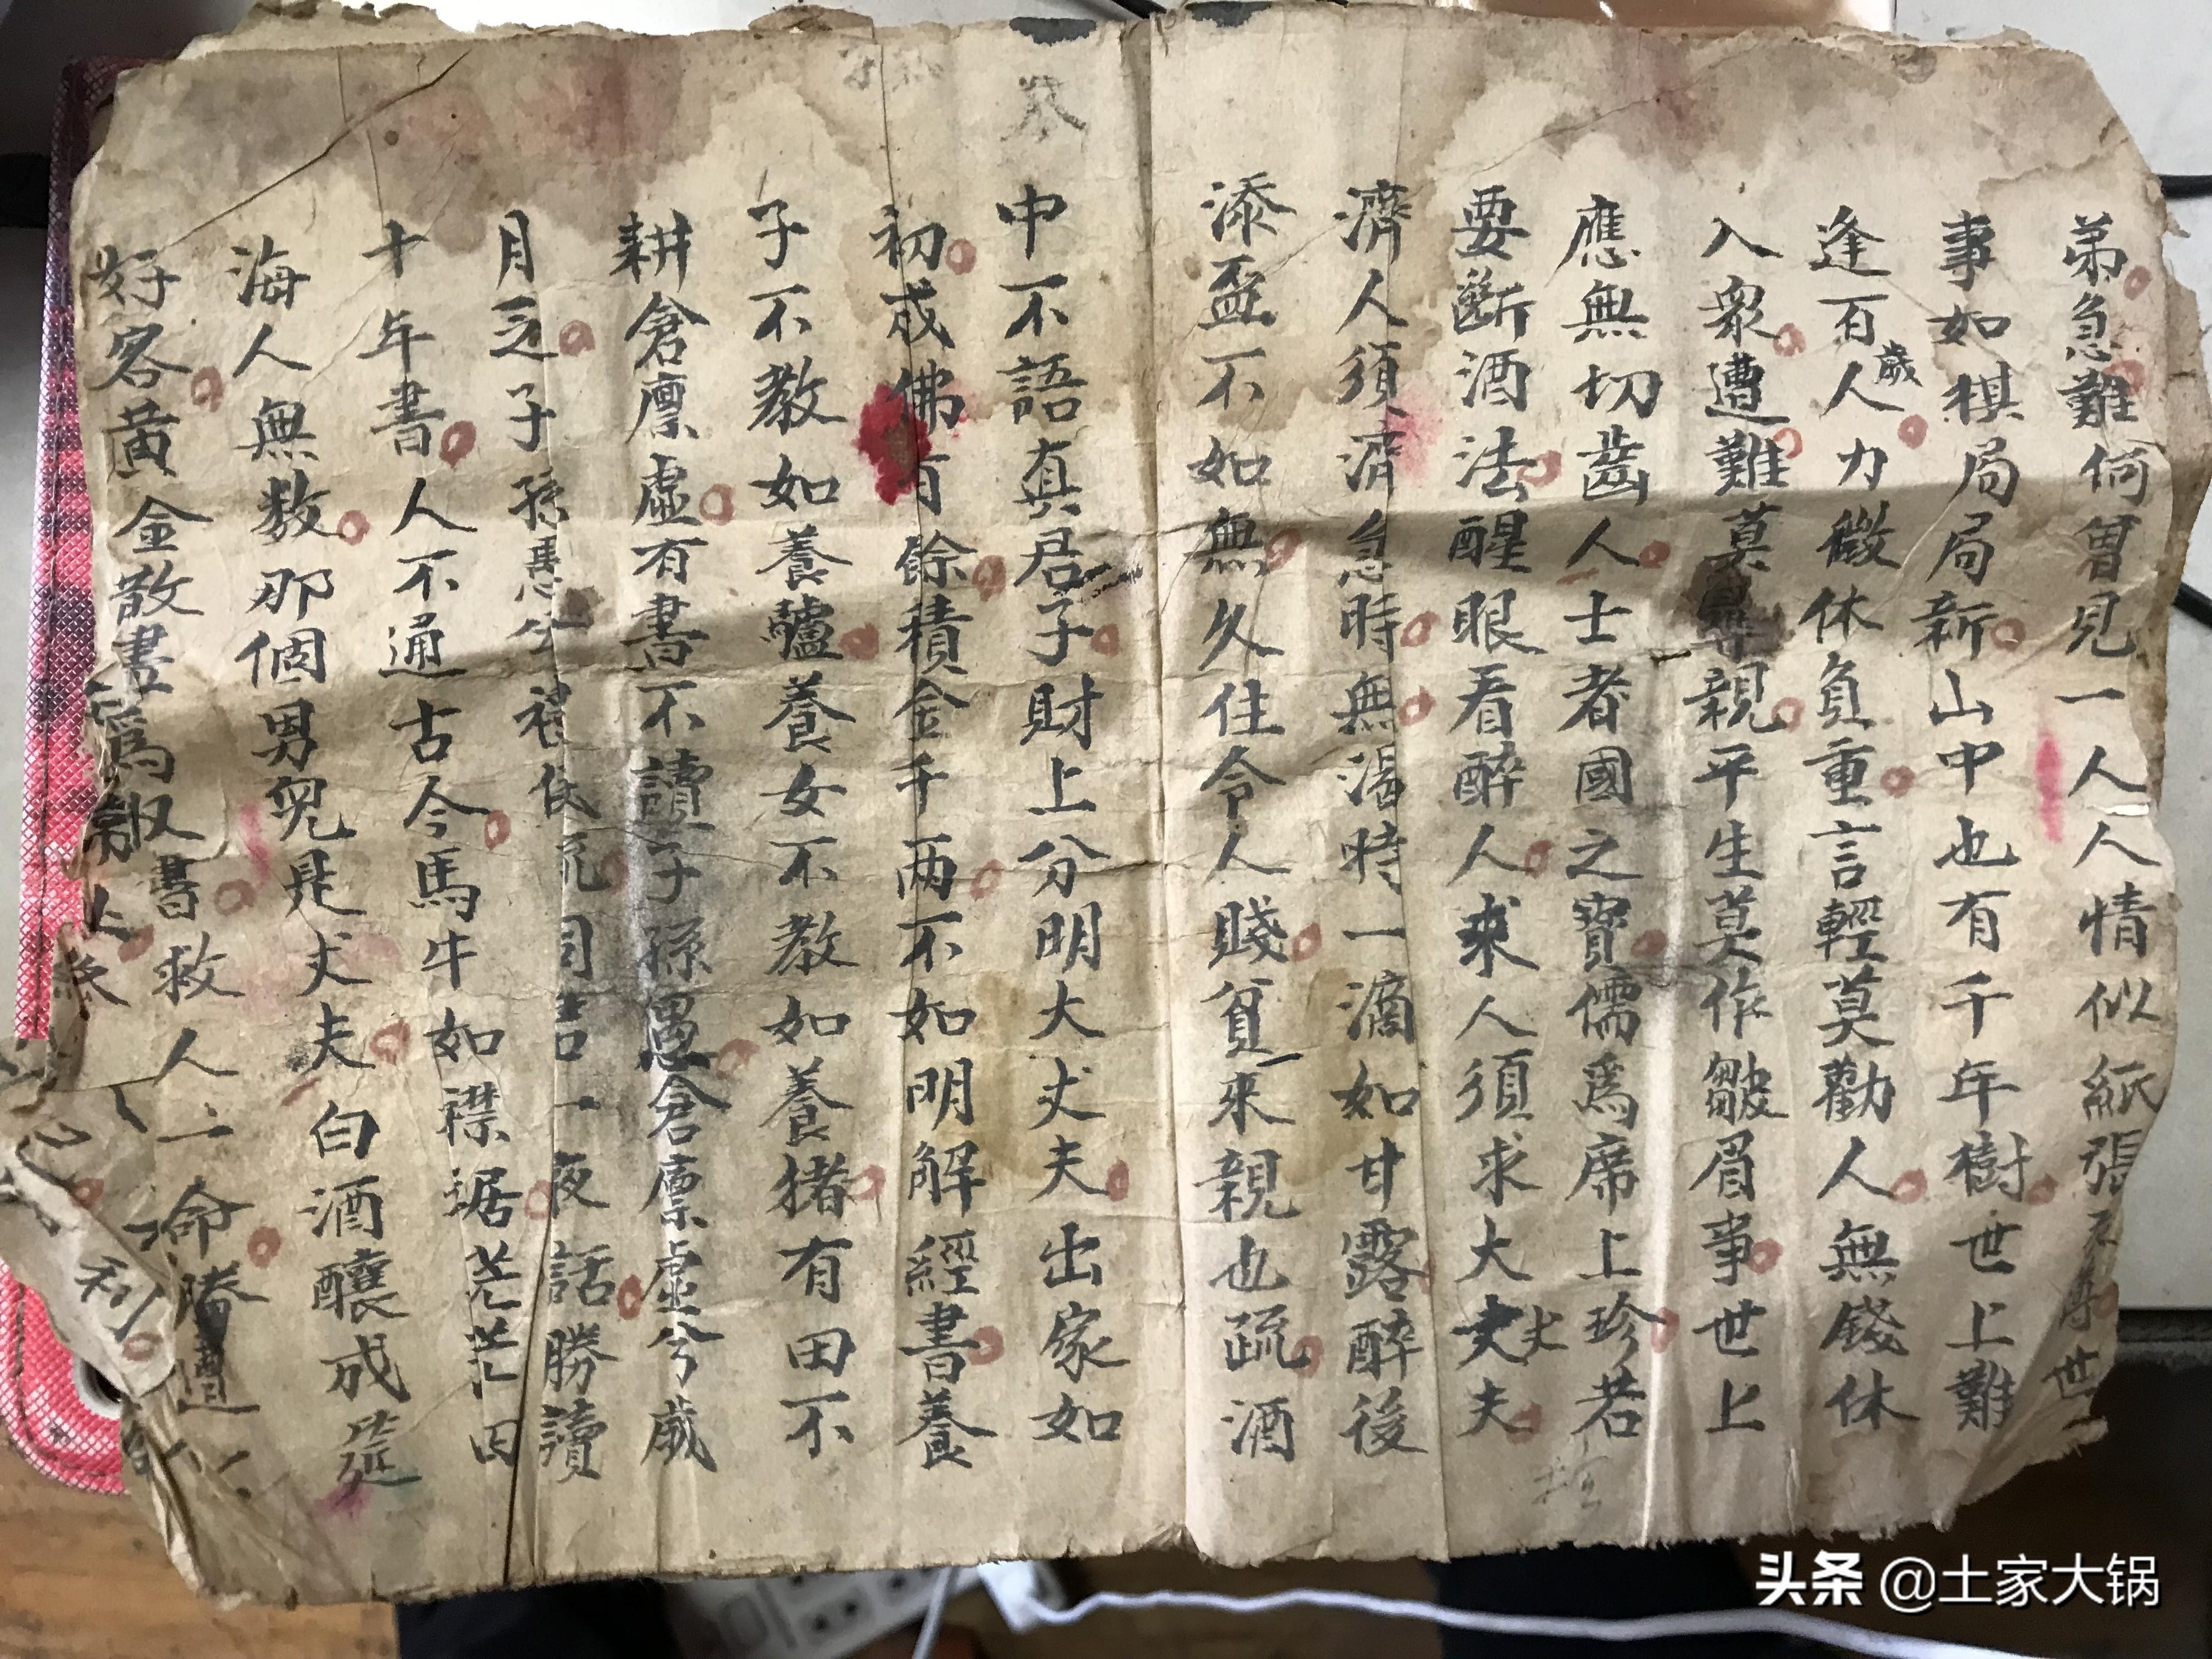 弟急難何曾見一人人情似紙張張薄世
事如棋局局新山中也有千年樹世上難
逢百人歲力微休負重言輕莫勸人無錢休
入衆遭難莫尋親平生莫作皺眉事世上
應無切齒人士者國之寳儒爲席上珍若
要斷酒法醒眼看醉人求人須求大夫丈夫
濟人須濟急時無渴時一滴如甘露醉後
添盃不如無久住令人賤貧來親也疏酒
中不語真君子財上分明大丈夫出家如
初成佛有餘積金千两不如明解經書養
子不教如養驢養女不教如養猪有田不
耕倉廩虛有書不讀子孫愚倉廩虛兮歲
月乏子孫愚兮禮依疏同君一夜話勝讀
十年書人不通古今馬牛如襟裾茫茫四
海人無数那個男兒是丈夫白酒釀成筵
好客黄金散盡爲収書救人一命勝造
頭条 @土家大锅